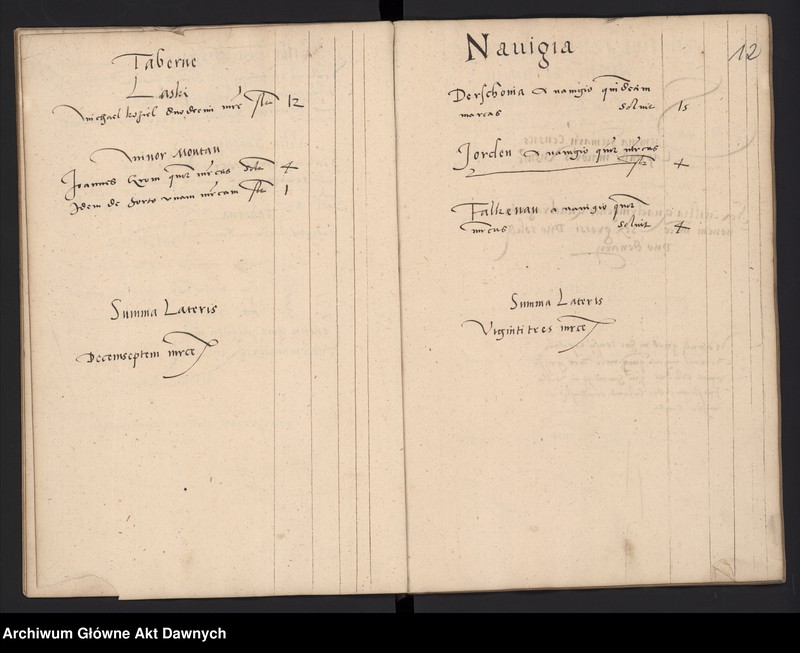 Taberne
Laski
Michael duodecim mrc 12
Minor Montau
Joannes Krom quor mrcas solu 4
Idem de horto vnam mrcam 1
Summa Lateris
Decemseptem mrce
Nauigia
12
Derschouia a nauigio quindecim
marcas soluit 15
Jorden a nauigio quor mrcas
4
Falkenau a nauigio quor
mrcas soluit 4
Summa Lateris
Viginti tres mrce
Archiwum Główne Akt Dawnych